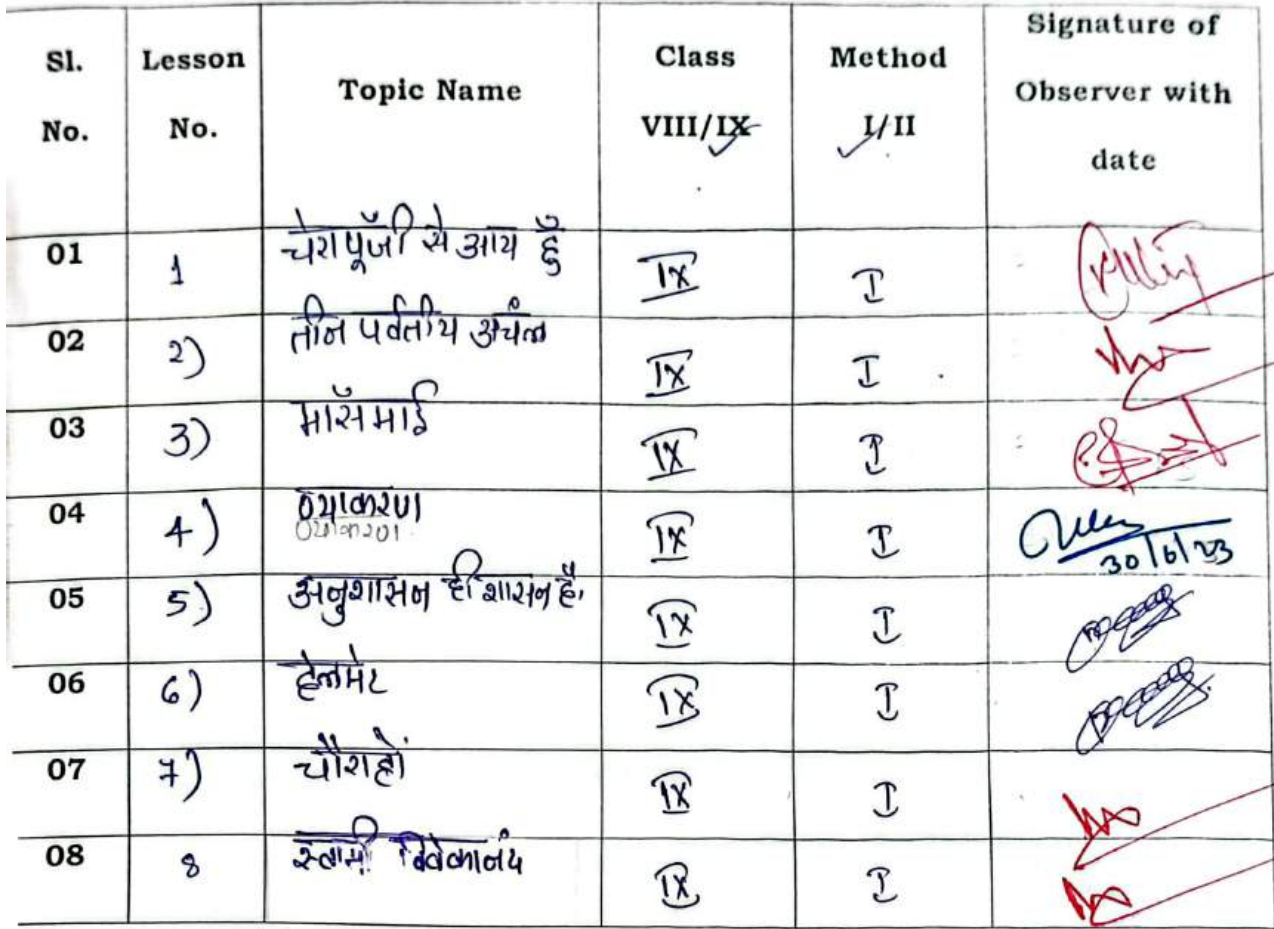 Sl. No. Lesson No. Topic Name Class VIII/IX Method I/II Signature of Observer with date
01 1 चेरापूँजी से आय हुँ IX I
02 2) तीन पर्वतीय अचंल IX I
03 3) मॉसमाई IX I
04 4) व्याकरण IX I 30/6/23
व्याकरण
05 5) अनुशासन ही शासन है. IX I
06 6) हेलमेट IX I
07 7) चौराहों IX I
08 8 स्वामी विवेकानंद IX I